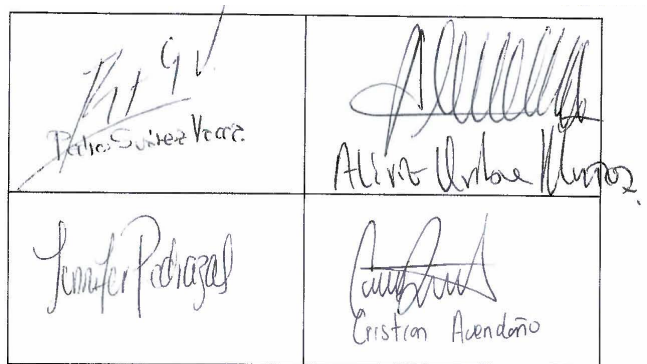 Pedro Suárez Vaca.
Alirio Uribe Muñoz.
Jennifer Pedraza S
Cristian Avendaño